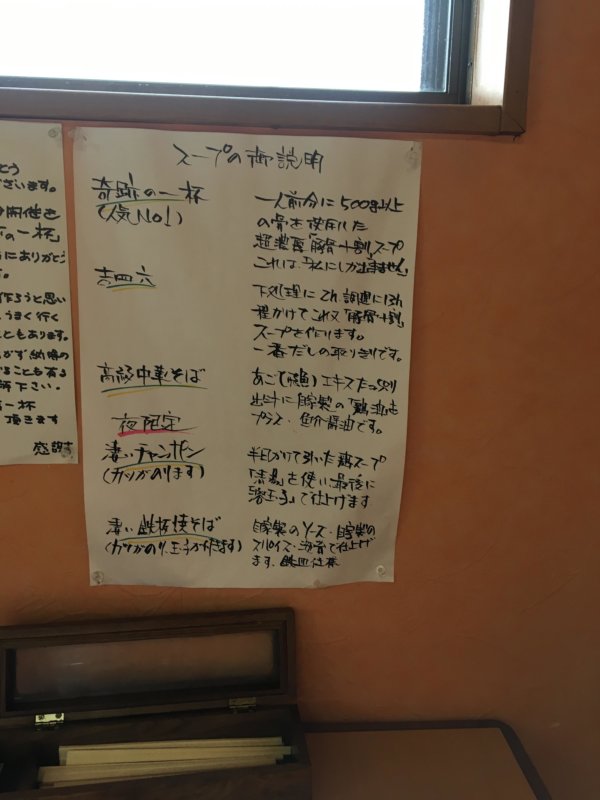 スープの御説明
奇跡の一杯
(人気No1)
一人前分に500g以上
の骨を使用した
超濃厚「豚骨十割」スープ
これは、「私にしか出来ません」
吉四六
下処理に2h、調理に13h
程かけてこれ又「豚骨十割」
スープを作ります。
一番だしの取りきりです。
高級中華そば
あご(飛魚)エキスたっぷり
出汁に自家製の「鶏油」を
プラス・魚介醤油です。
夜限定
凄いチャンポン
(カツがのります)
半日かけて引いた鶏スープ
「清湯」を使い最後に
「溶玉子」で仕上げます
凄い鉄板焼そば
(カツがのり、玉子が付きます)
自家製のソース・自家製の
スパイス・で仕上げ
ます、鉄皿仕様
とう
ございます。
開催を
の一杯」
にありがとう
す。
作ろうと思い
うまく行く
こともあります。
かず納得の
ることも有る
解下さい。
一杯
頂きます
感謝